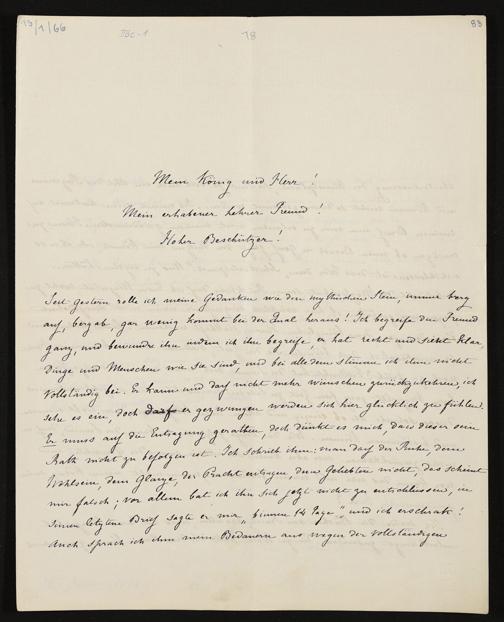 19/1/66
IIBc-1
78
83
Mein König und Herr!
Mein erhabener hehrer Freund!
Hoher Beschützer!
Seit gestern rolle ich meine Gedanken wie den mythischen Stein, immer berg
auf, bergab, gar wenig kommt bei der Qual heraus! Ich begreife den Freund
ganz, und bewundre ihn indem ich ihn begreife, er hat recht und sieht klar,
Dinge und Menschen wie sie sind, und bei alledem stimme ich ihm nicht
vollständig bei. Er kann und darf nicht mehr wünschen zurückzukehren, ich
sehe es ein, doch darf er gezwungen werden sich hier glücklich zu fühlen.
Er muss auf die Entsagung gerathen, doch dünkt es mich, dass dieser sein
Rath nicht zu befolgen ist. Ich schrieb ihm: man darf der Ruhe, dem
Wohlsein, dem Glanze, der Pracht entsagen, dem Geliebten nicht, das scheint
mir falsch; vor allem bat ich ihn sich jetzt nicht zu entschliessen, in
seinem letzten Brief sagte er mir „binnen 14 Tage" und ich erschrak!
Auch sprach ich ihm mein Bedauern aus wegen der vollständigen